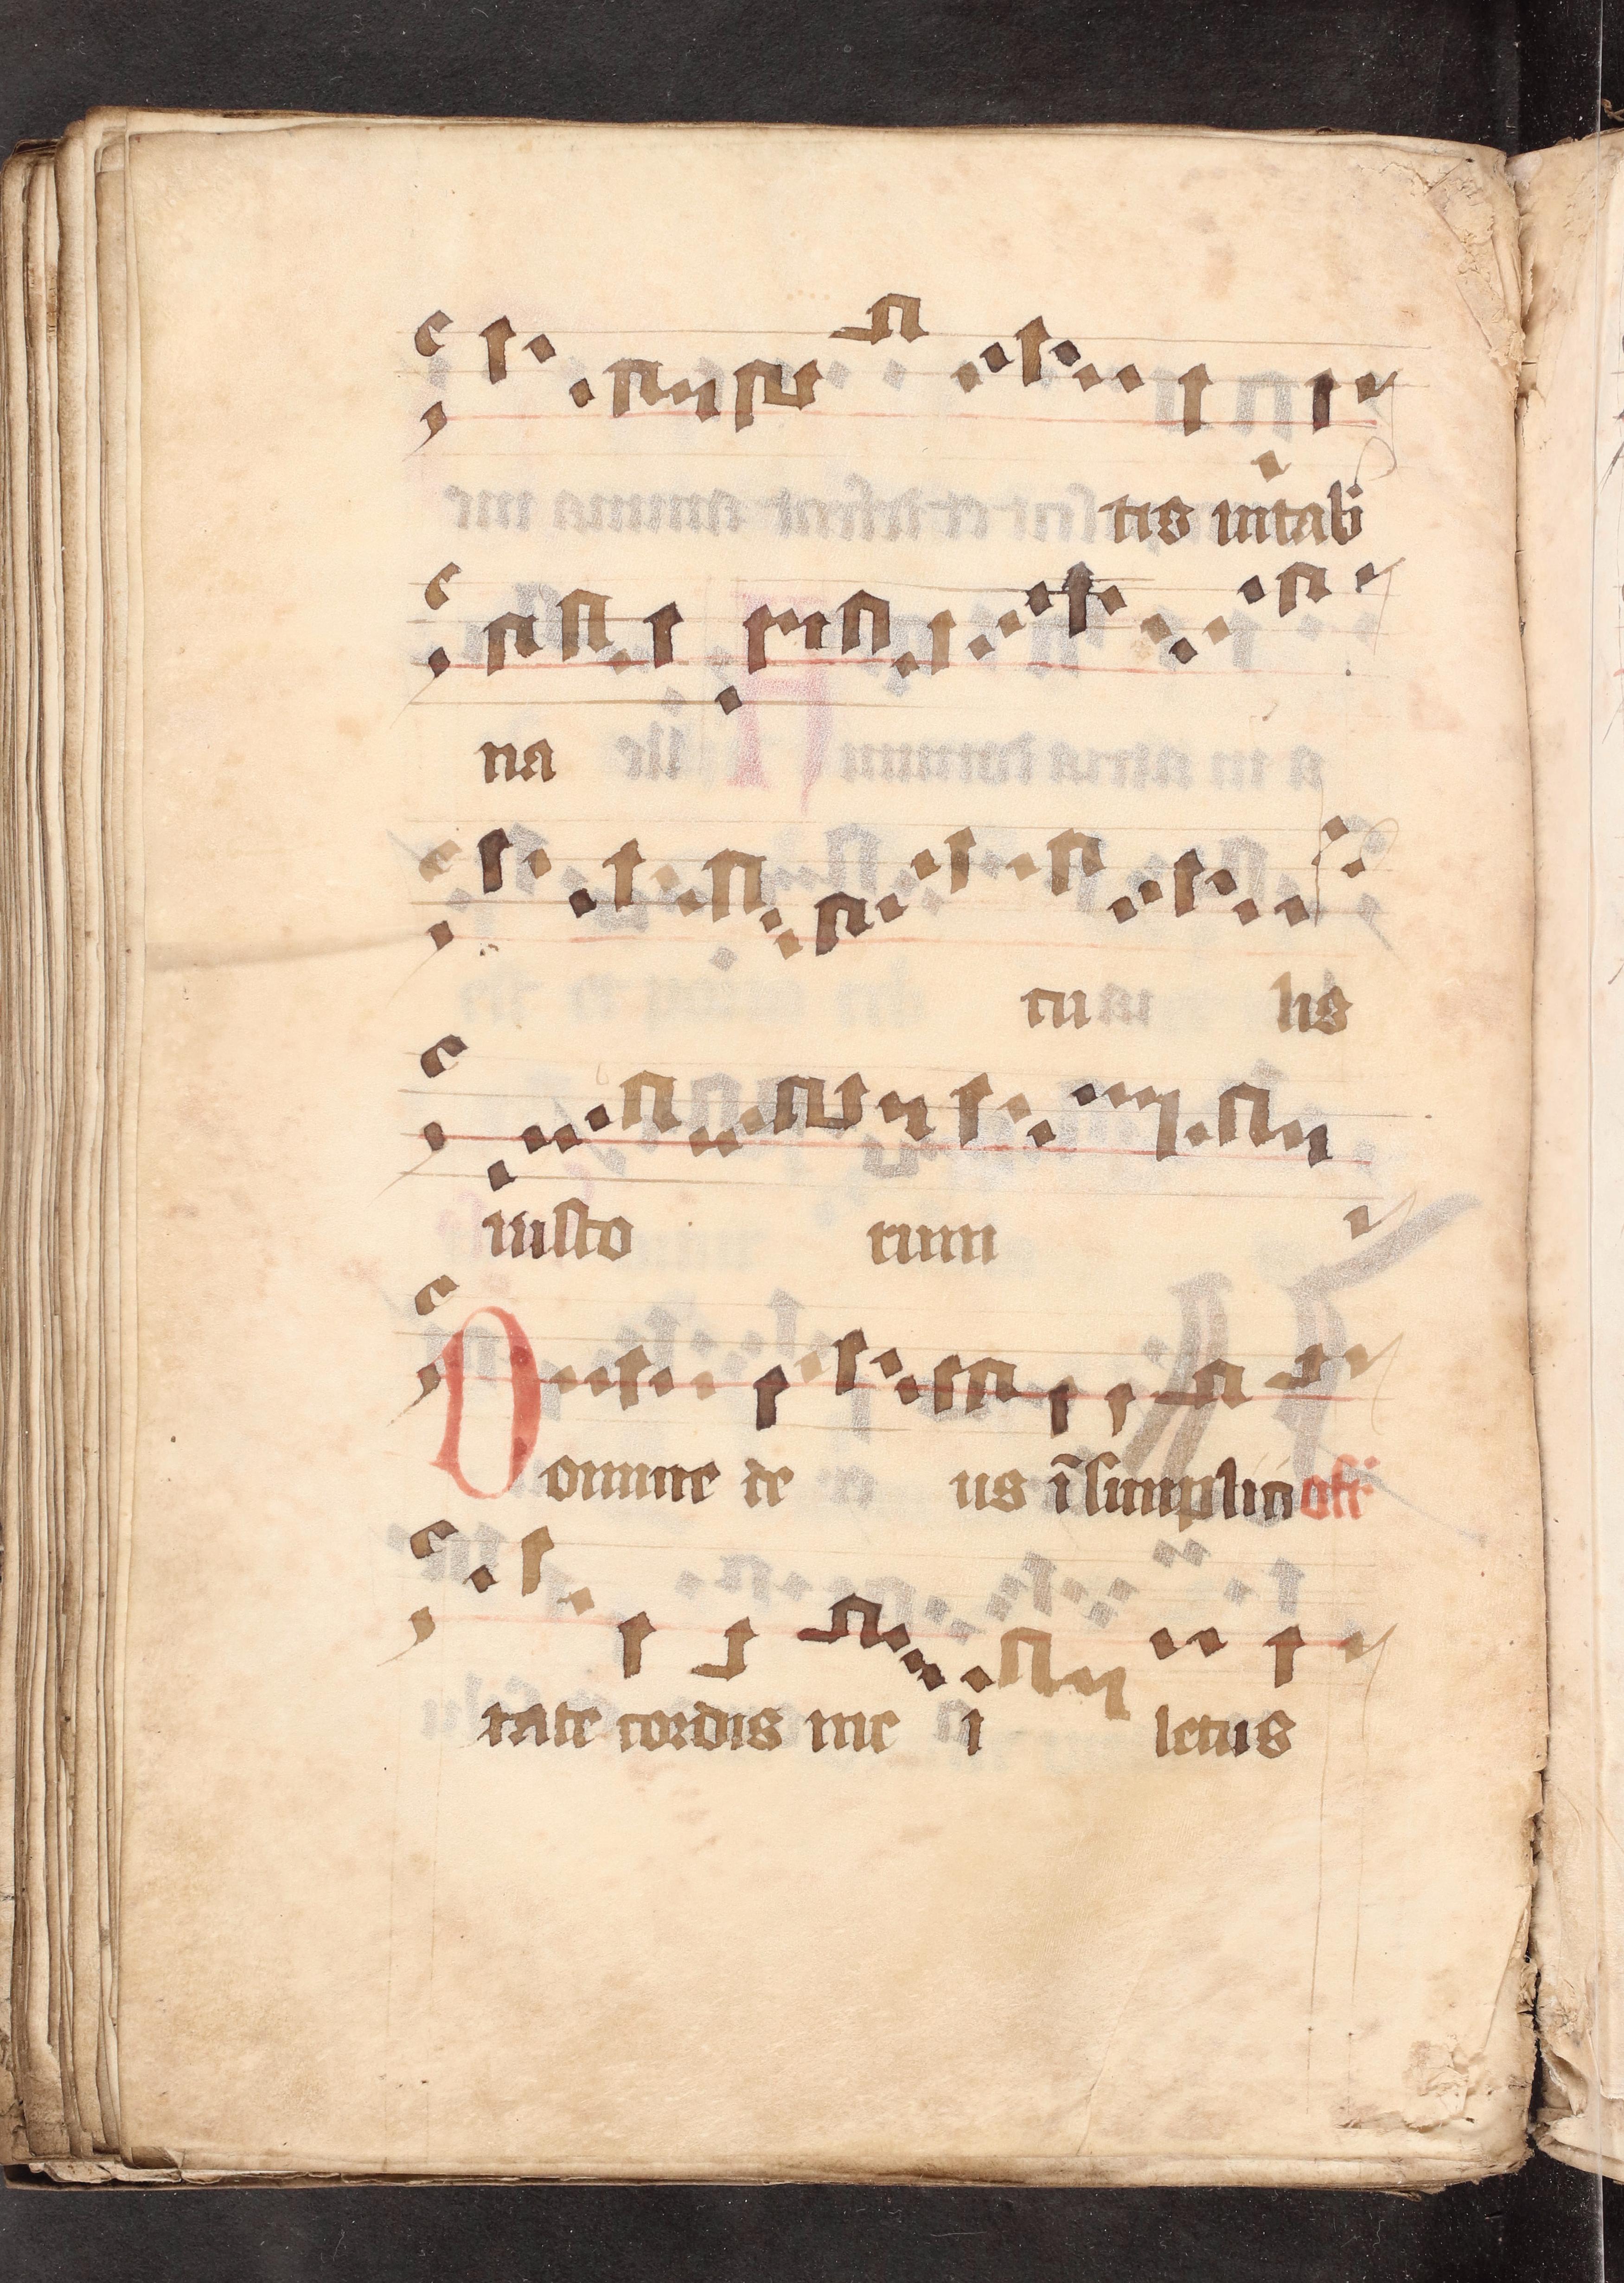 tis intab
na
cu lis
iusto rum
Domine de us ī simplici off
tate cordis me i letus